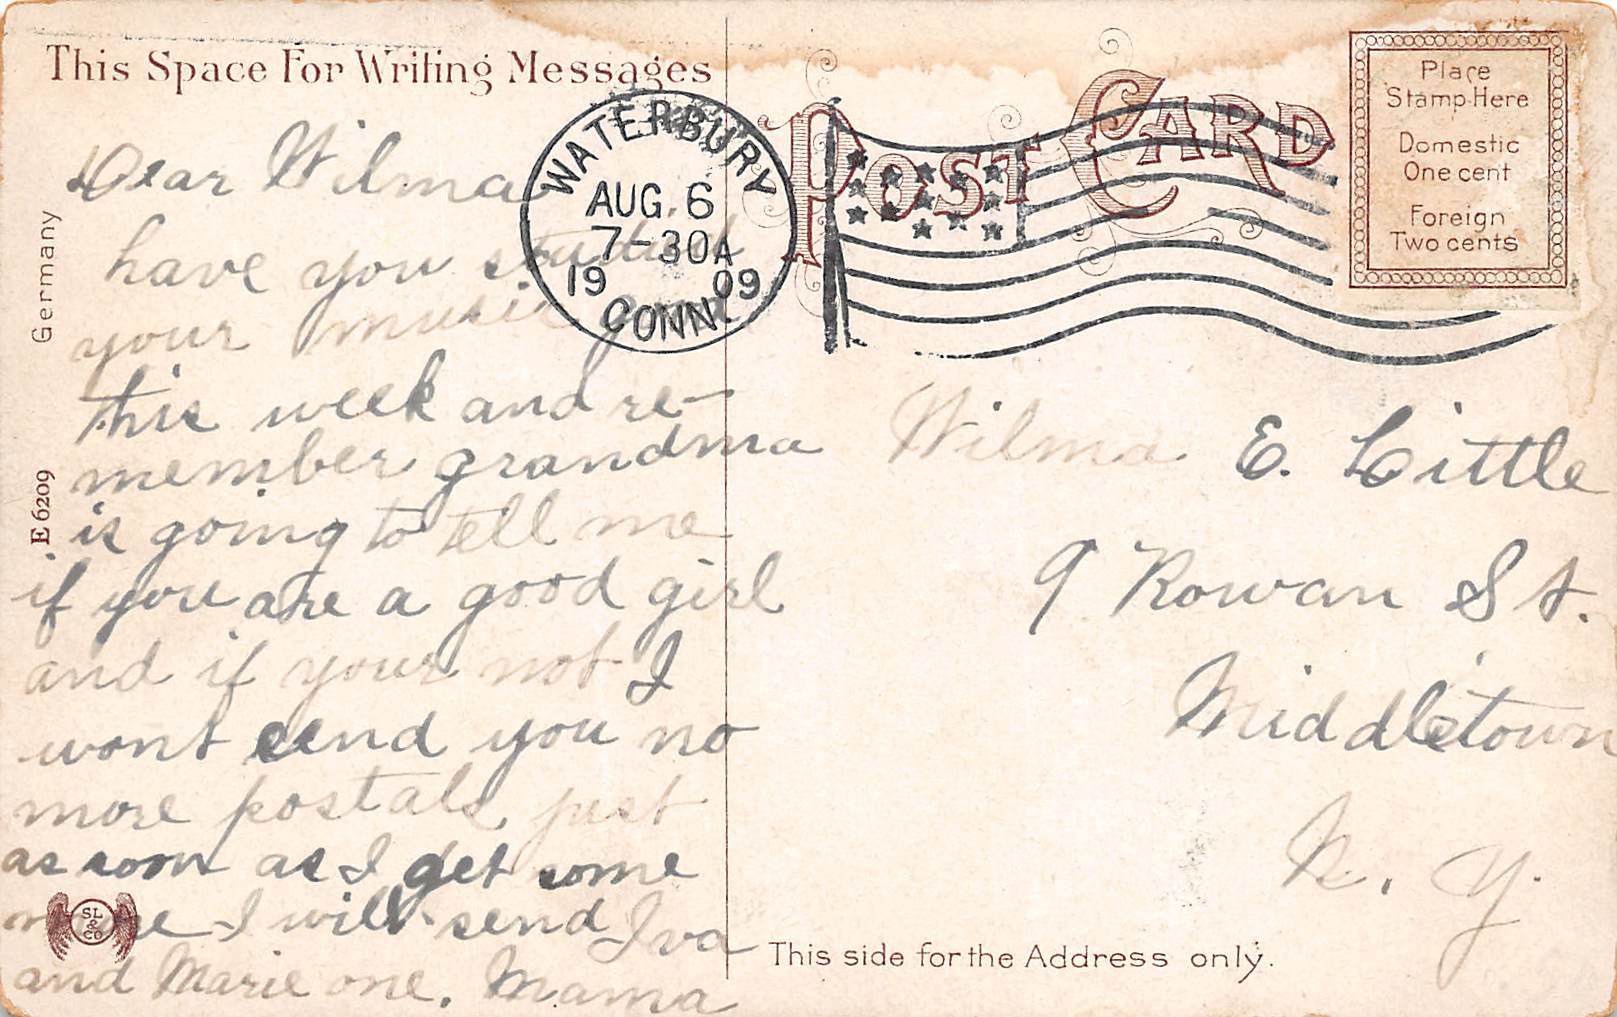 This Space For Writing Messages
POST CARD
Place
Stamp Here
Domestic
One cent
Foreign
Two cents
WATERBURY
AUG. 6
7-30A
19 09
CONN.
Germany
E 6209
Dear Wilma
have you studied
your music
this week and re-
member grandma
is going to tell me
if you are a good girl
and if your not I
wont send you no
more postals just
as soon as I get some
more I will send Iva
and Marie one. Mama
SL
&
CO
Wilma E. Little
9 Rowan St.
Middletown
N. Y.
This side for the Address only.